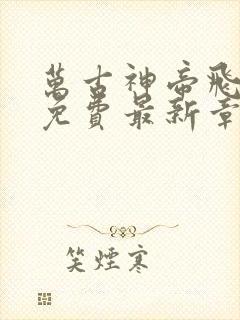 萬古神帝飛
免費最新章
笑煙寒